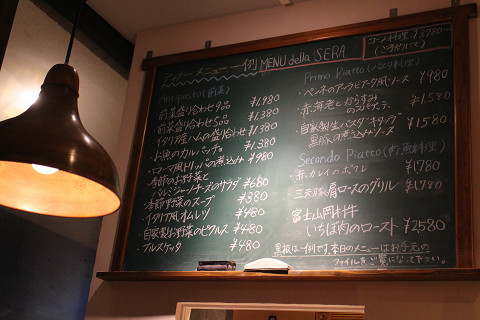 ディナーメニュー一例 MENU della SERA
コース料理 ¥3780〜
(ご予約にて)
Antipasto(前菜)
前菜盛り合わせ9品 ¥1,980
前菜盛り合わせ5品 ¥1,380
イタリア産ハムの盛り合わせ ¥1,380
鮮魚のカルパッチョ ¥1,380
ローマ風トリッパの煮込み ¥980
季節野菜と
パルミジャーノチーズのサラダ ¥680
季節野菜のスープ ¥380
イタリア風オムレツ ¥480
自家製お野菜のピクルス ¥480
ブルスケッタ ¥480
Primo Piatto(パスタ料理)
ペンネのアラビアータ風ソース ¥980
赤海老とからすみの
スパゲティ ¥1,580
自家製生パスタ"キタッラ"
黒豚の煮込みソース ¥1580
Secondo Piatto(肉魚料理)
赤イカの ¥1780
三元豚肩ロースのグリル ¥1,780
富士山岡村牛
いちぼ肉のロースト ¥2580
黒板は一例です。本日のメニューはお手元の
ファイルをご覧になって下さい。